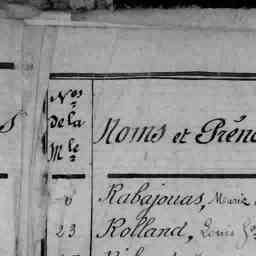 Nos
de la
Mle
Noms et Prén
6 Rabajouas, Meurie
23 Rolland, Louis